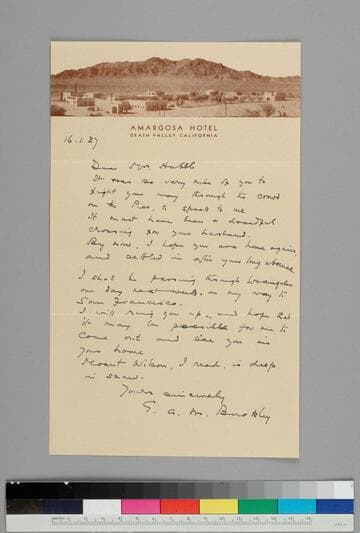 AMARGOSA HOTEL
DEATH VALLEY, CALIFORNIA
16.1.37
Dear Mrs. Hubble
It was so very nice of you to
fight your way through the crowd
on the Pier, to speak to me.
It must have been a dreadful
crossing for your husband.
By now, I hope you are home again,
and settled in after your long absence
I shall be passing through Losangeles
one day next week, on my way to
San Francisco.
I will ring you up, and hope that
it may be possible for me to
come out and see you in
your home.
Mount Wilson, I read, is deep
in snow.
Yours sincerely
G. A. M. Buckley